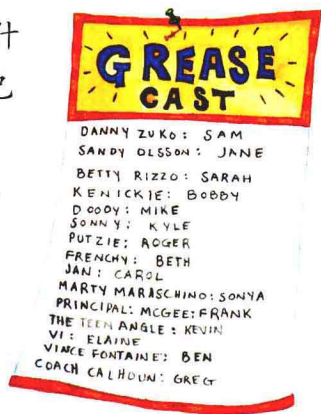 什
GREASE
CAST
DANNY ZUKO: SAM
SANDY OLSSON: JANE
BETTY RIZZO: SARAH
KENICKIE: BOBBY
DOODY: MIKE
SONNY: KYLE
PUTZIE: ROGER
FRENCHY: BETH
JAN: CAROL
MARTY MARASCHINO: SONYA
PRINCIPAL: MCGEE: FRANK
THE TEEN ANGLE: KEVIN
VI: ELAINE
VINCE FONTAINE: BEN
COACH CALHOUN: GREG